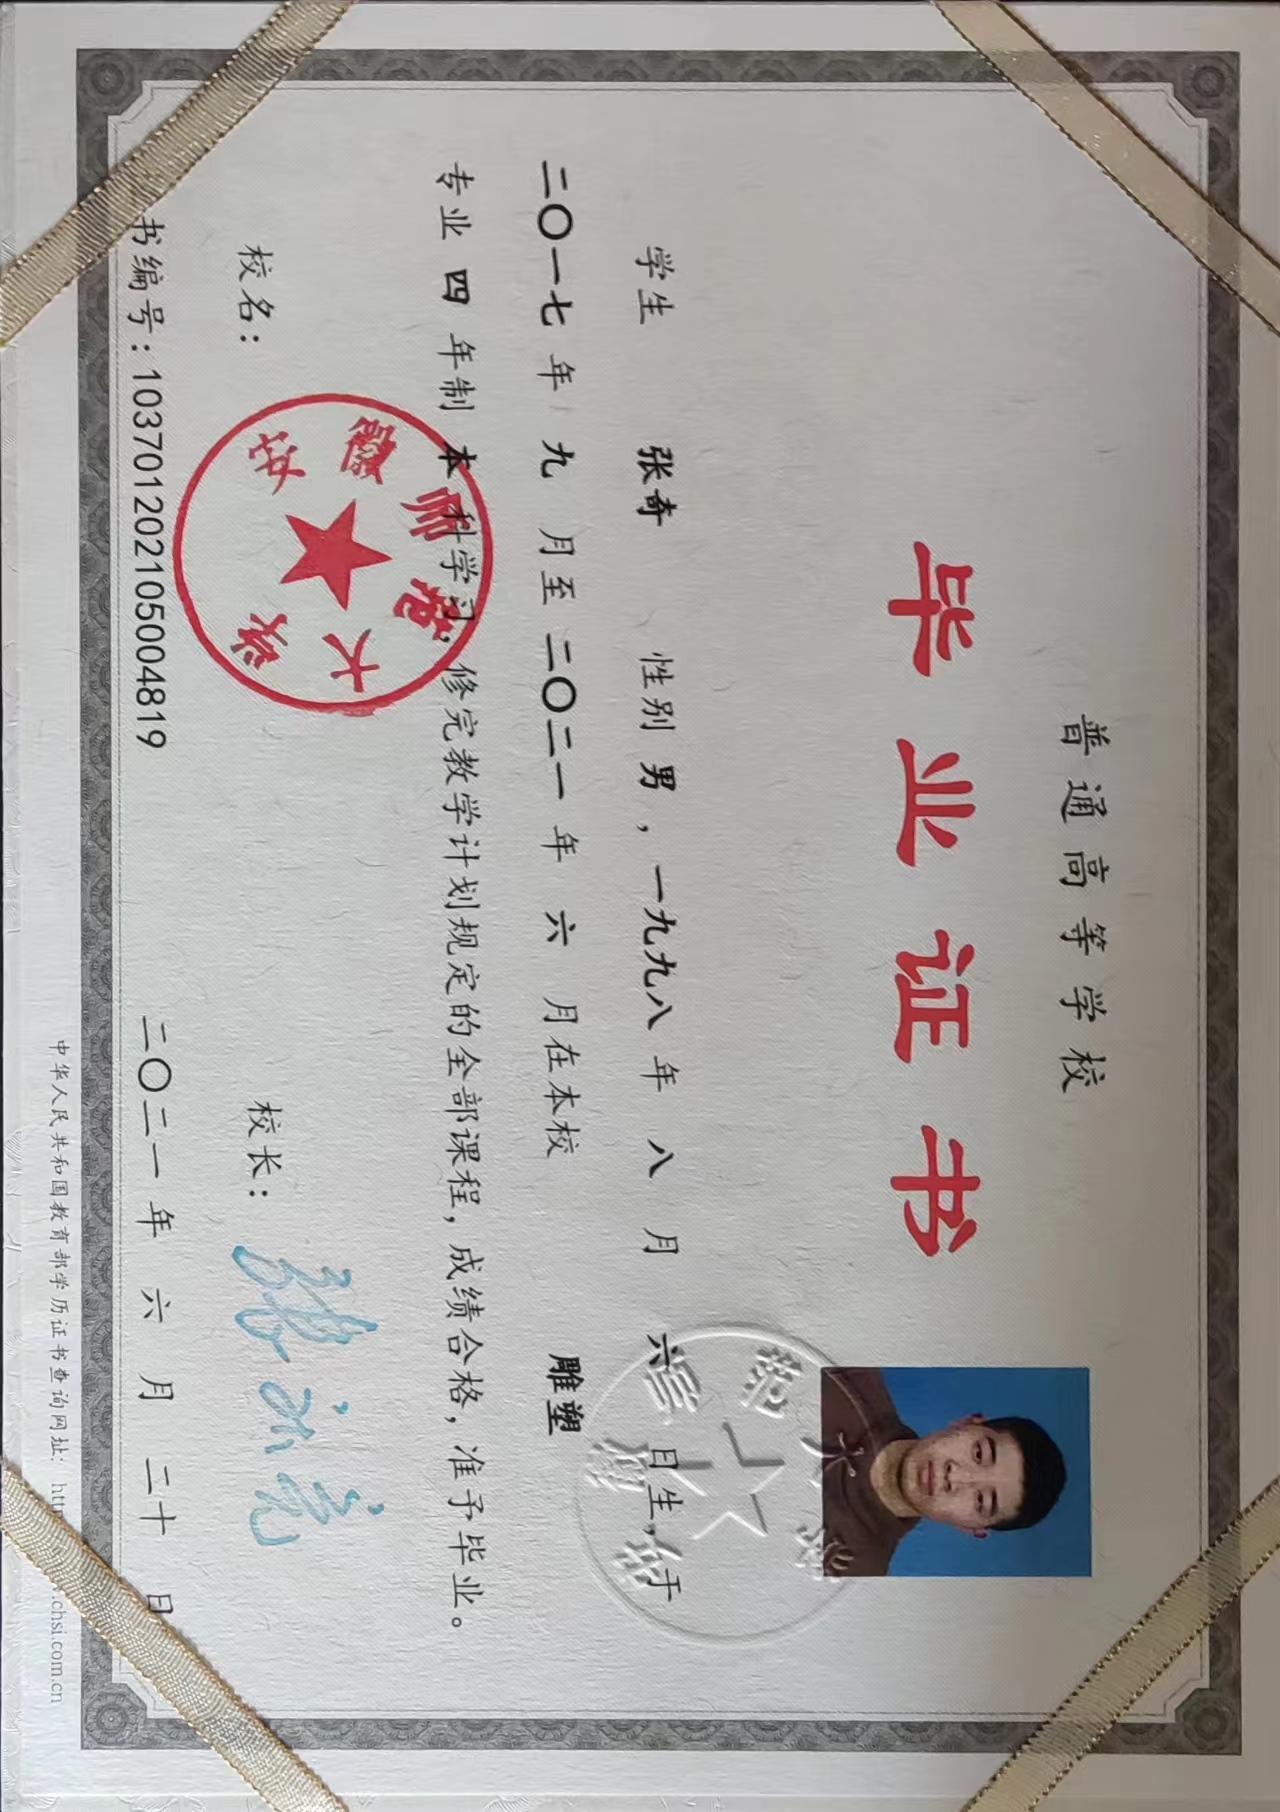 普通高等学校
毕业证书
学生 张奇 性别 男，一九九八 年 八 月 六 日生，于
二〇一七 年 九 月至 二〇二一 年 六 月在本校 雕塑
专业 四 年制 本 科学习，修完教学计划规定的全部课程，成绩合格，准予毕业。
校名： 安徽师范大学 校长：
书编号：103701202105004819 二〇二一 年 六 月 二十 日
中华人民共和国教育部学历证书查询网址： .chsi.com.cn
安徽师范大学